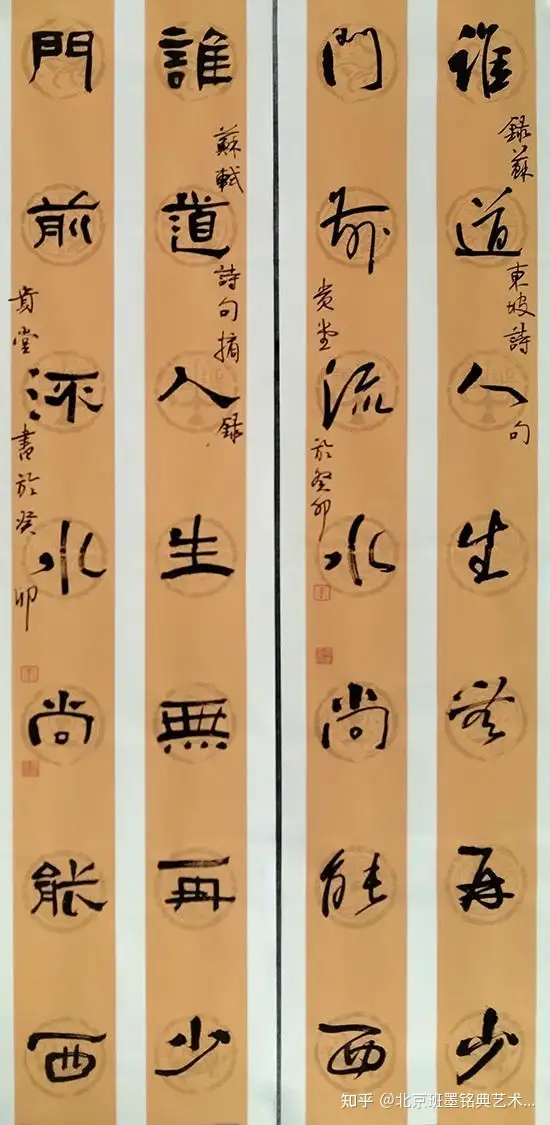 誰道人生無再少
錄蘇東坡詩句
門前流水尚能西
堂於癸卯
誰道人生無再少
蘇軾詩句摘錄
門前流水尚能西
堂書於癸卯
知乎 @北京班墨铭典艺术...